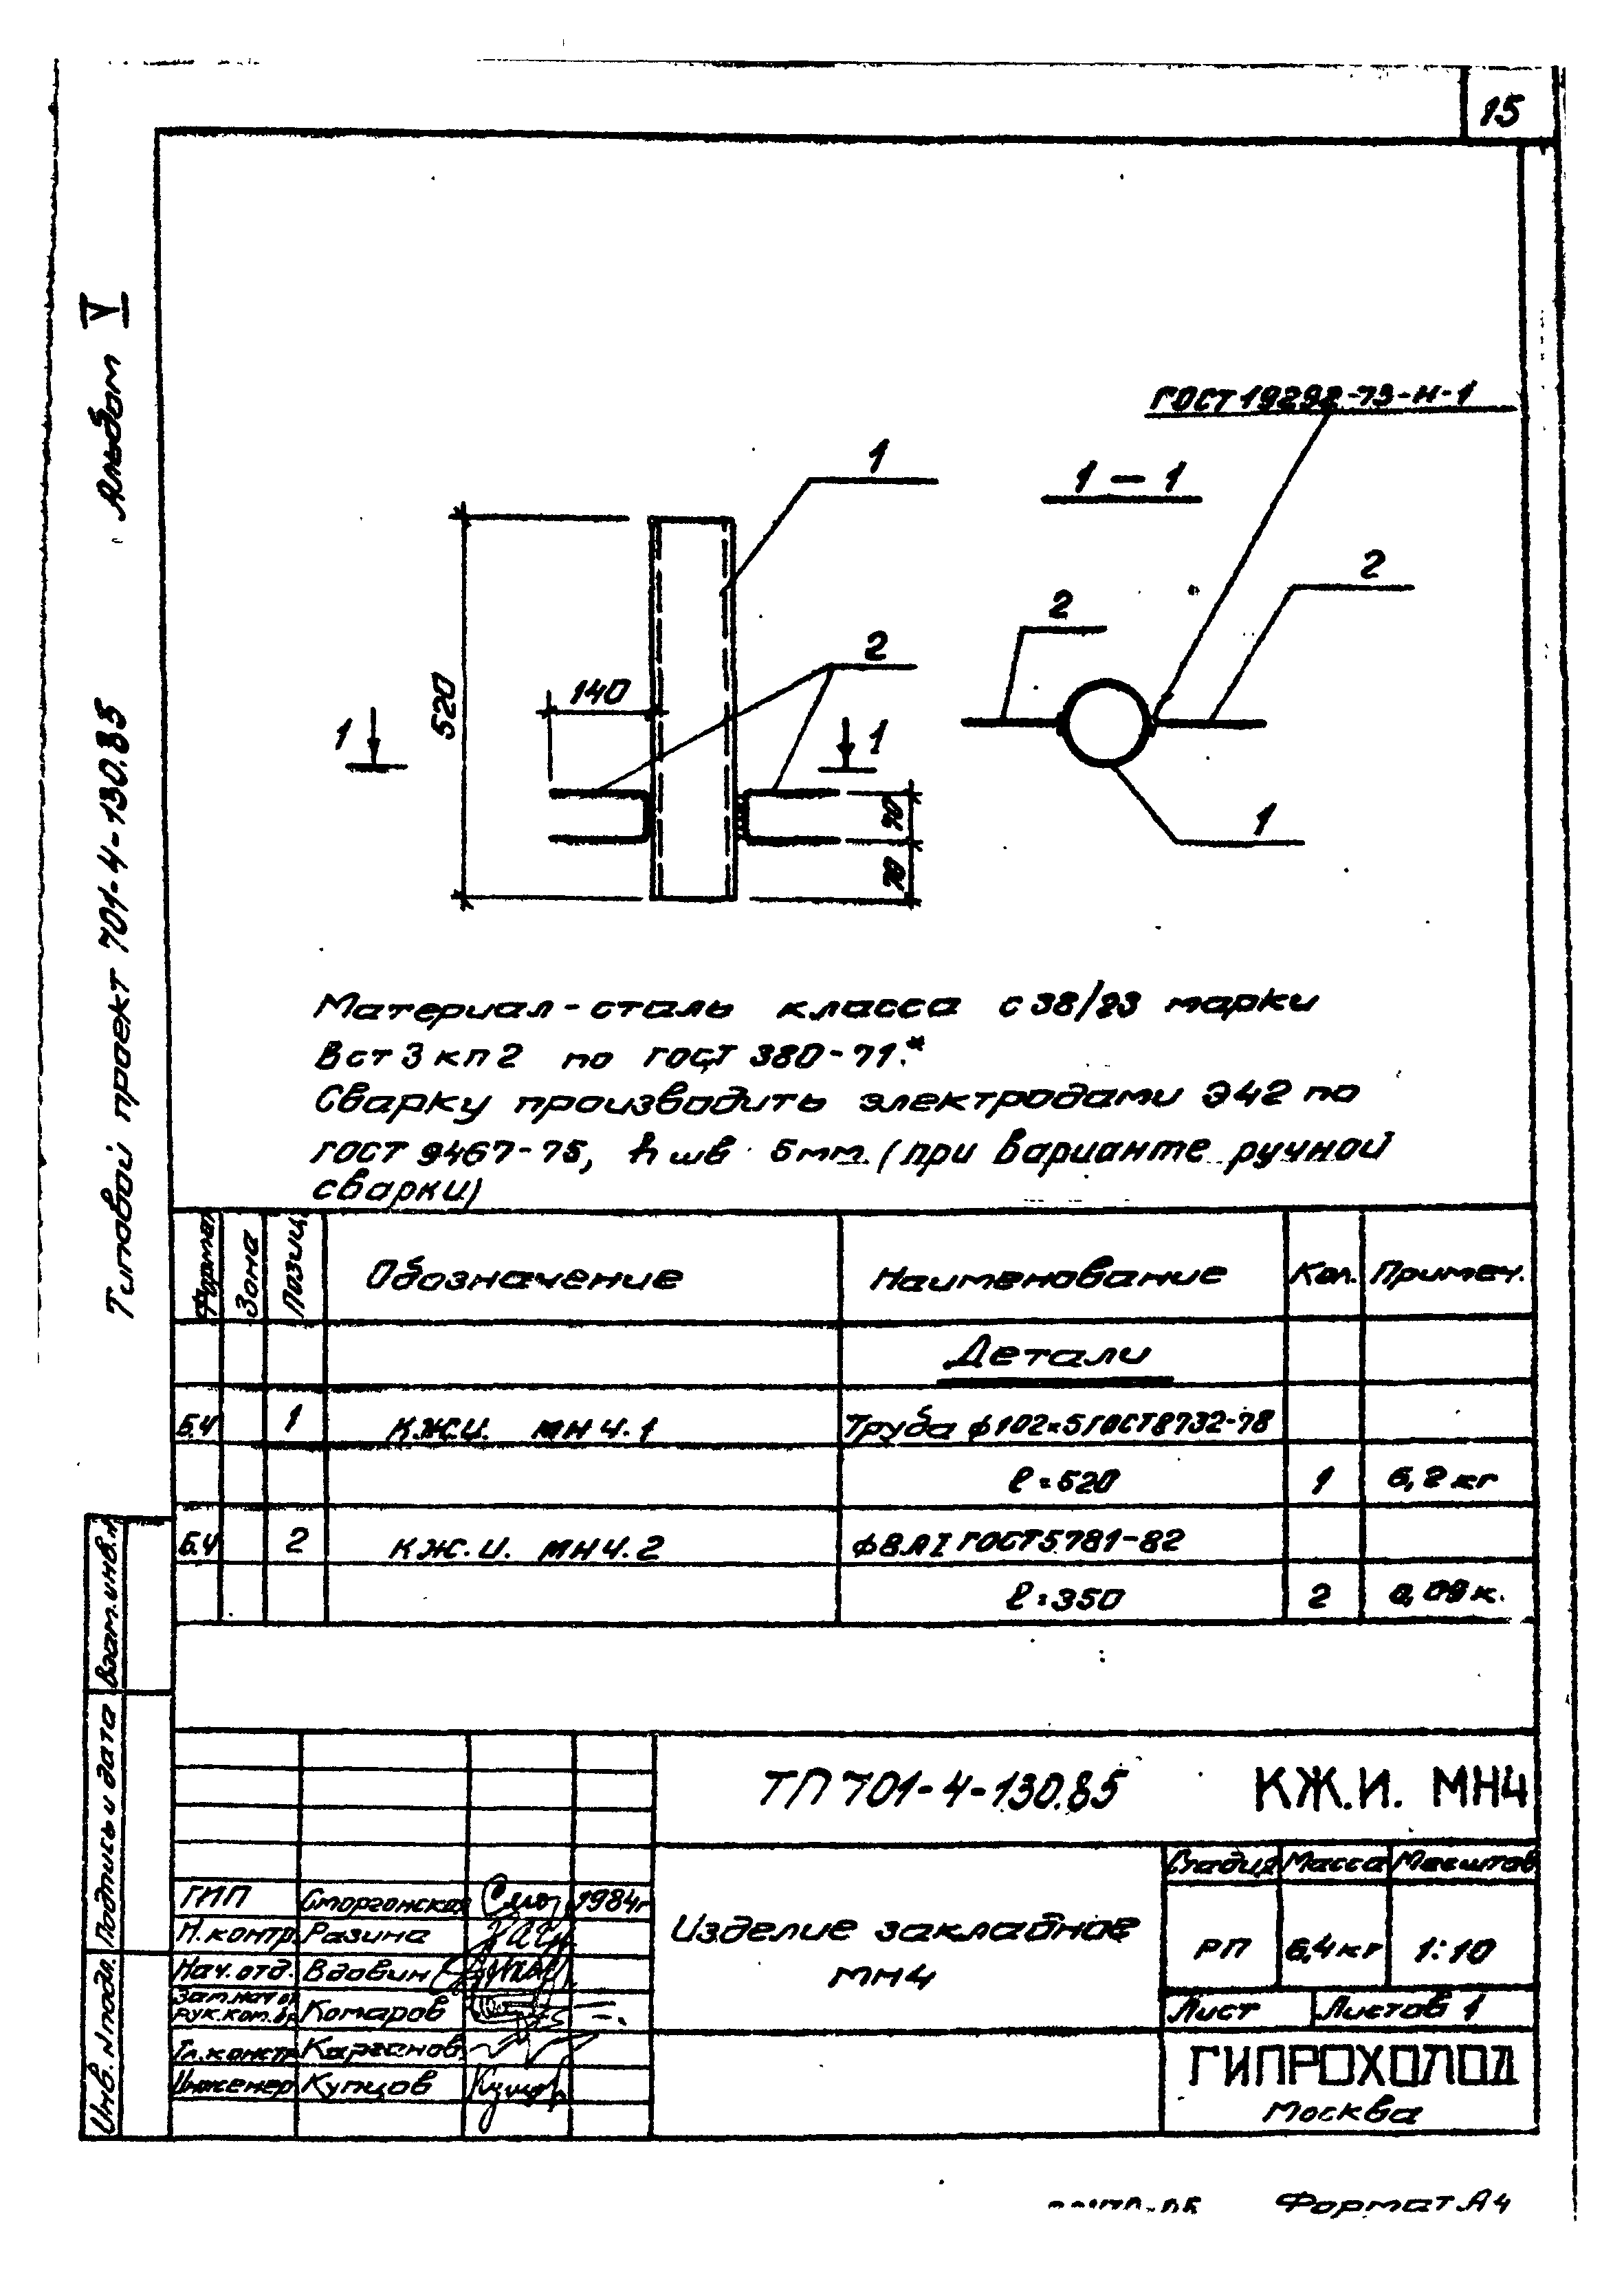 15
Альбом V
Типовой проект 701-4-130.85
ГОСТ 19292-73-Н-1
1 — 1
1
2
2
2
1
520
140
1
1
70
70
Материал - сталь класса с 38/23 марки
Вст3кп2 по ГОСТ 380-71.*
Сварку производить электродами Э42 по
ГОСТ 9467-75, h шв 5мм (при варианте ручной
сварки)
Формат Зона Позиц. Обозначение Наименование Кол. Примеч.
Детали
Б.Ч 1 КЖ.И. МН4.1 Труба ф102×5 ГОСТ 8732-78
ℓ=520 1 6,2 кг
Б.Ч 2 КЖ.И. МН4.2 ф8.АI ГОСТ 5781-82
ℓ=350 2 0,09 к.
Взам.инв.№
Подпись и дата
Инв. N подл.
ТП 701-4-130.85 КЖ.И. МН4
Стадия Масса Масштаб
РП 6,4кг 1:10
Изделие закладное
МН4
Лист Листов 1
ГИПРОХОЛОД
Москва
ГИП Сморгонская 1984г
Н.контр. Разина
Нач.отд. Вдовин
Зам.нач от
рук.ком.бр. Комаров
Гл.констр. Карганов
Инженер Купцов
Формат А4